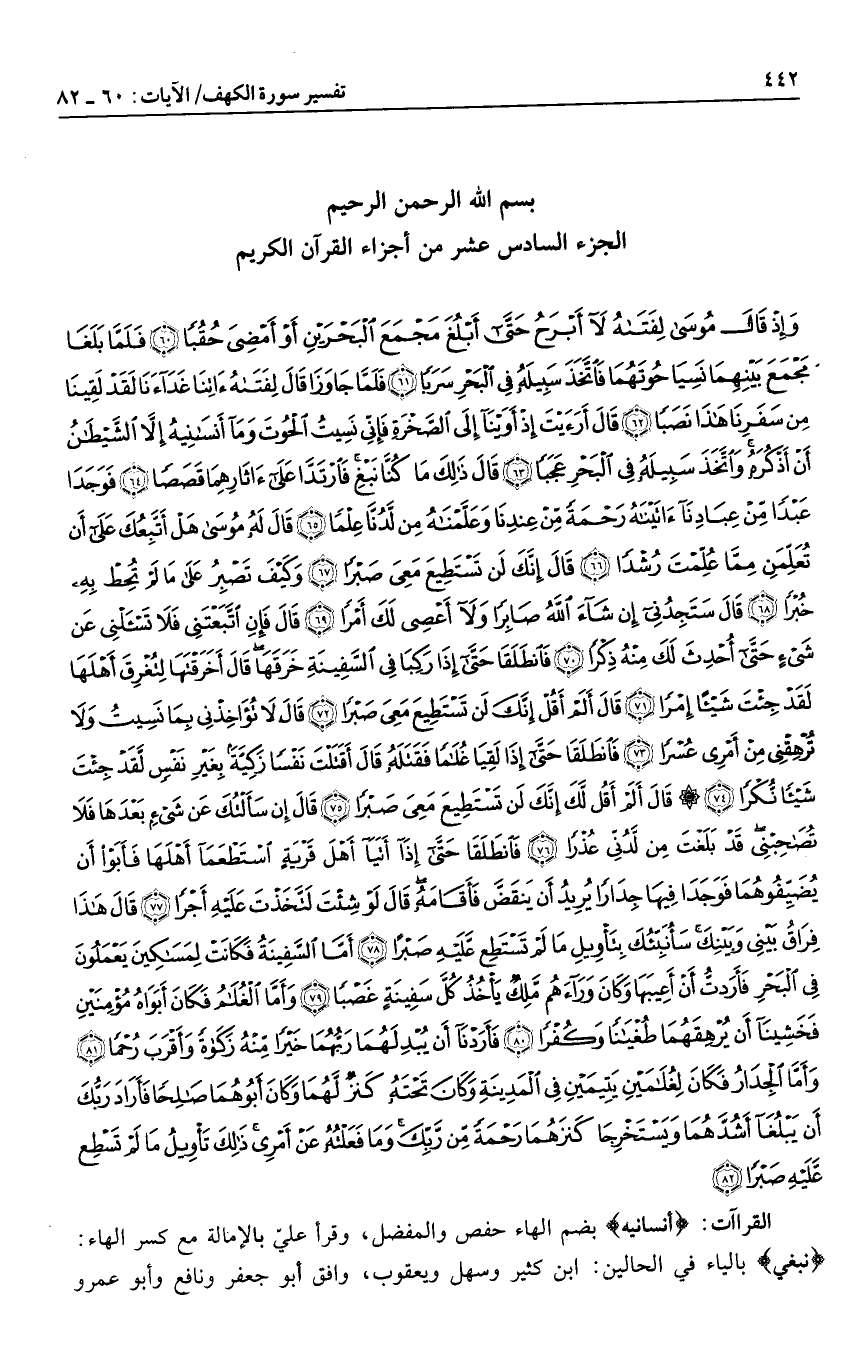 ٤٤٢
تفسير سورة الكهف/ الآيات: ٦٠ ـ ٨٢
بسم الله الرحمن الرحيم
الجزء السادس عشر من أجزاء القرآن الكريم
وَإِذْ قَالَ مُوسَىٰ لِفَتَىٰهُ لَآ أَبْرَحُ حَتَّىٰٓ أَبْلُغَ مَجْمَعَ ٱلْبَحْرَيْنِ أَوْ أَمْضِىَ حُقُبًا ﴿٦٠﴾ فَلَمَّا بَلَغَا
مَجْمَعَ بَيْنِهِمَا نَسِيَا حُوتَهُمَا فَٱتَّخَذَ سَبِيلَهُۥ فِى ٱلْبَحْرِ سَرَبًا ﴿٦١﴾ فَلَمَّا جَاوَزَا قَالَ لِفَتَىٰهُ ءَاتِنَا غَدَآءَنَا لَقَدْ لَقِينَا
مِن سَفَرِنَا هَٰذَا نَصَبًا ﴿٦٢﴾ قَالَ أَرَءَيْتَ إِذْ أَوَيْنَآ إِلَى ٱلصَّخْرَةِ فَإِنِّى نَسِيتُ ٱلْحُوتَ وَمَآ أَنسَىٰنِيهُ إِلَّا ٱلشَّيْطَٰنُ
أَنْ أَذْكُرَهُۥ وَٱتَّخَذَ سَبِيلَهُۥ فِى ٱلْبَحْرِ عَجَبًا ﴿٦٣﴾ قَالَ ذَٰلِكَ مَا كُنَّا نَبْغِ فَٱرْتَدَّا عَلَىٰٓ ءَاثَارِهِمَا قَصَصًا ﴿٦٤﴾ فَوَجَدَا
عَبْدًا مِّنْ عِبَادِنَآ ءَاتَيْنَٰهُ رَحْمَةً مِّنْ عِندِنَا وَعَلَّمْنَٰهُ مِن لَّدُنَّا عِلْمًا ﴿٦٥﴾ قَالَ لَهُۥ مُوسَىٰ هَلْ أَتَّبِعُكَ عَلَىٰٓ أَن
تُعَلِّمَنِ مِمَّا عُلِّمْتَ رُشْدًا ﴿٦٦﴾ قَالَ إِنَّكَ لَن تَسْتَطِيعَ مَعِىَ صَبْرًا ﴿٦٧﴾ وَكَيْفَ تَصْبِرُ عَلَىٰ مَا لَمْ تُحِطْ بِهِۦ
خُبْرًا ﴿٦٨﴾ قَالَ سَتَجِدُنِىٓ إِن شَآءَ ٱللَّهُ صَابِرًا وَلَآ أَعْصِى لَكَ أَمْرًا ﴿٦٩﴾ قَالَ فَإِنِ ٱتَّبَعْتَنِى فَلَا تَسْـَٔلْنِى عَن
شَىْءٍ حَتَّىٰٓ أُحْدِثَ لَكَ مِنْهُ ذِكْرًا ﴿٧٠﴾ فَٱنطَلَقَا حَتَّىٰٓ إِذَا رَكِبَا فِى ٱلسَّفِينَةِ خَرَقَهَا ۖ قَالَ أَخَرَقْتَهَا لِتُغْرِقَ أَهْلَهَا
لَقَدْ جِئْتَ شَيْـًٔا إِمْرًا ﴿٧١﴾ قَالَ أَلَمْ أَقُلْ إِنَّكَ لَن تَسْتَطِيعَ مَعِىَ صَبْرًا ﴿٧٢﴾ قَالَ لَا تُؤَاخِذْنِى بِمَا نَسِيتُ وَلَا
تُرْهِقْنِى مِنْ أَمْرِى عُسْرًا ﴿٧٣﴾ فَٱنطَلَقَا حَتَّىٰٓ إِذَا لَقِيَا غُلَٰمًا فَقَتَلَهُۥ قَالَ أَقَتَلْتَ نَفْسًا زَكِيَّةًۢ بِغَيْرِ نَفْسٍ لَّقَدْ جِئْتَ
شَيْـًٔا نُّكْرًا ﴿٧٤﴾ ۞ قَالَ أَلَمْ أَقُل لَّكَ إِنَّكَ لَن تَسْتَطِيعَ مَعِىَ صَبْرًا ﴿٧٥﴾ قَالَ إِن سَأَلْتُكَ عَن شَىْءٍۭ بَعْدَهَا فَلَا
تُصَٰحِبْنِى ۖ قَدْ بَلَغْتَ مِن لَّدُنِّى عُذْرًا ﴿٧٦﴾ فَٱنطَلَقَا حَتَّىٰٓ إِذَآ أَتَيَآ أَهْلَ قَرْيَةٍ ٱسْتَطْعَمَآ أَهْلَهَا فَأَبَوْا۟ أَن
يُضَيِّفُوهُمَا فَوَجَدَا فِيهَا جِدَارًا يُرِيدُ أَن يَنقَضَّ فَأَقَامَهُۥ ۖ قَالَ لَوْ شِئْتَ لَتَّخَذْتَ عَلَيْهِ أَجْرًا ﴿٧٧﴾ قَالَ هَٰذَا
فِرَاقُ بَيْنِى وَبَيْنِكَ ۚ سَأُنَبِّئُكَ بِتَأْوِيلِ مَا لَمْ تَسْتَطِع عَّلَيْهِ صَبْرًا ﴿٧٨﴾ أَمَّا ٱلسَّفِينَةُ فَكَانَتْ لِمَسَٰكِينَ يَعْمَلُونَ
فِى ٱلْبَحْرِ فَأَرَدتُّ أَنْ أَعِيبَهَا وَكَانَ وَرَآءَهُم مَّلِكٌ يَأْخُذُ كُلَّ سَفِينَةٍ غَصْبًا ﴿٧٩﴾ وَأَمَّا ٱلْغُلَٰمُ فَكَانَ أَبَوَاهُ مُؤْمِنَيْنِ
فَخَشِينَآ أَن يُرْهِقَهُمَا طُغْيَٰنًا وَكُفْرًا ﴿٨٠﴾ فَأَرَدْنَآ أَن يُبْدِلَهُمَا رَبُّهُمَا خَيْرًا مِّنْهُ زَكَوٰةً وَأَقْرَبَ رُحْمًا ﴿٨١﴾
وَأَمَّا ٱلْجِدَارُ فَكَانَ لِغُلَٰمَيْنِ يَتِيمَيْنِ فِى ٱلْمَدِينَةِ وَكَانَ تَحْتَهُۥ كَنزٌ لَّهُمَا وَكَانَ أَبُوهُمَا صَٰلِحًا فَأَرَادَ رَبُّكَ
أَن يَبْلُغَآ أَشُدَّهُمَا وَيَسْتَخْرِجَا كَنزَهُمَا رَحْمَةً مِّن رَّبِّكَ ۚ وَمَا فَعَلْتُهُۥ عَنْ أَمْرِى ۚ ذَٰلِكَ تَأْوِيلُ مَا لَمْ تَسْطِع
عَّلَيْهِ صَبْرًا ﴿٨٢﴾
القراآت: ﴿أنسانيه﴾ بضم الهاء حفص والمفضل، وقرأ عليّ بالإمالة مع كسر الهاء:
﴿نبغي﴾ بالياء في الحالين: ابن كثير وسهل ويعقوب، وافق أبو جعفر ونافع وأبو عمرو